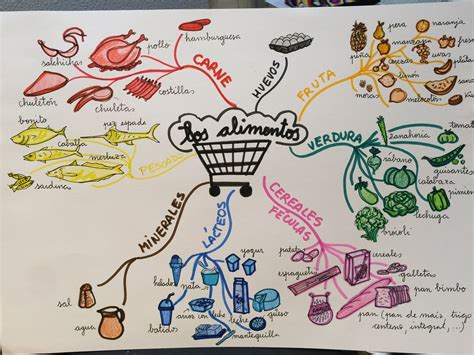 Los alimentos
CARNE
hamburguesa
pollo
salchichas
chuletón
chuletas
costillas
HUEVOS
FRUTA
pera
naranja
manzana
uvas
piña
fresa
limón
kiwi
moras
melocotón
VERDURA
zanahoria
tomate
rábano
guisantes
calabaza
pimiento
lechuga
brócoli
CEREALES
FÉCULAS
patatas
cereales
espaguetis
galletas
pan bimbo
pan (pan de maíz, trigo
centeno, integral, ...)
LÁCTEOS
yogur
helados
nata
leche
queso
arroz con leche
batidos
mantequilla
MINERALES
sal
agua
PESCADO
bonito
pez espada
caballa
merluza
sardina